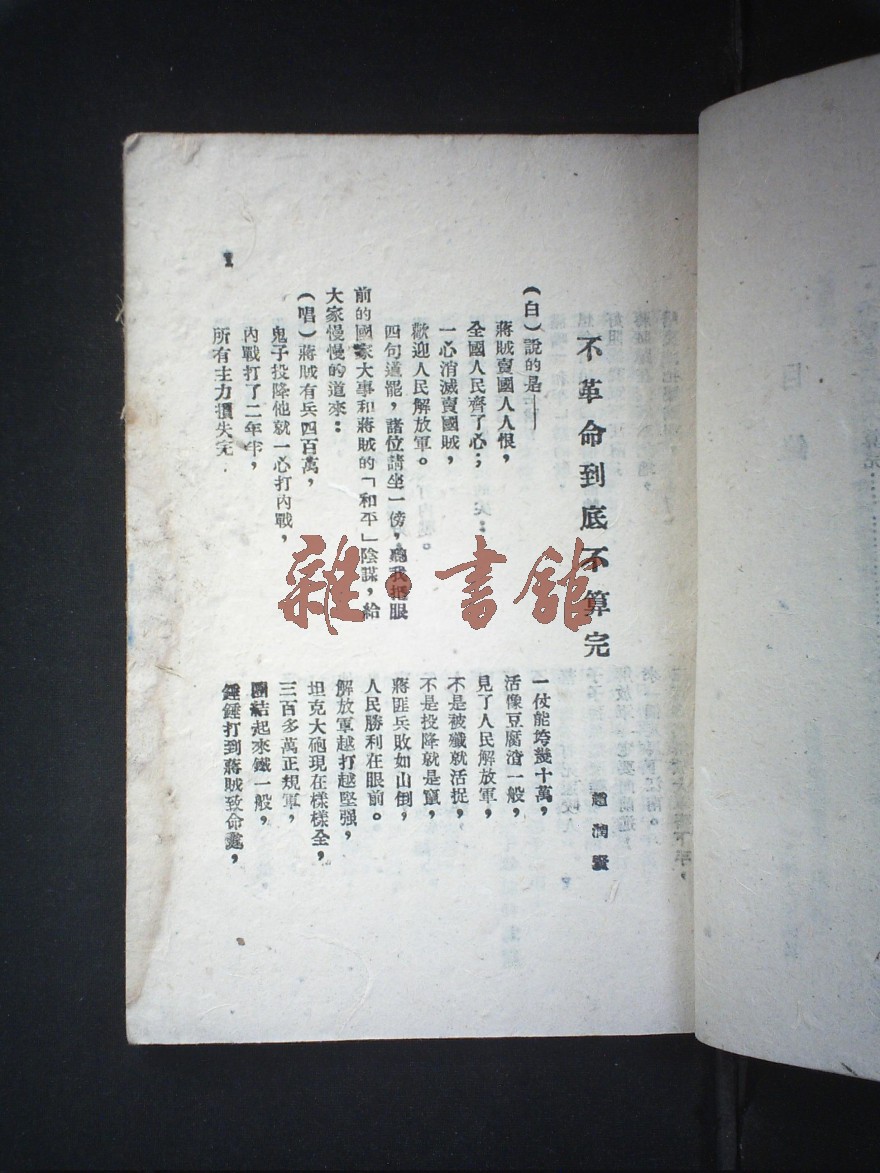 不革命到底不算完
趙潤
(白)說的是——
蔣賊賣國人人恨，
全國人民齊了心；
一心消滅賣國賊，
歡迎人民解放軍。
四句道罷，諸位請坐一傍，聽我把眼
前的國家大事和蔣賊的「和平」陰謀，給
大家慢慢的道來：
(唱)蔣賊有兵四百萬，
鬼子投降他就一心打內戰，
內戰打了二年半，
所有主力損失完
一仗能垮幾十萬，
活像豆腐渣一般，
見了人民解放軍，
不是被殲就活捉，
不是投降就是竄，
蔣匪兵敗如山倒，
人民勝利在眼前。
解放軍越打越堅强，
坦克大砲現在樣樣全，
三百多萬正規軍，
團結起來鐵一般，
錘錘打到蔣賊致命處，
1
雜·書館
目
錄